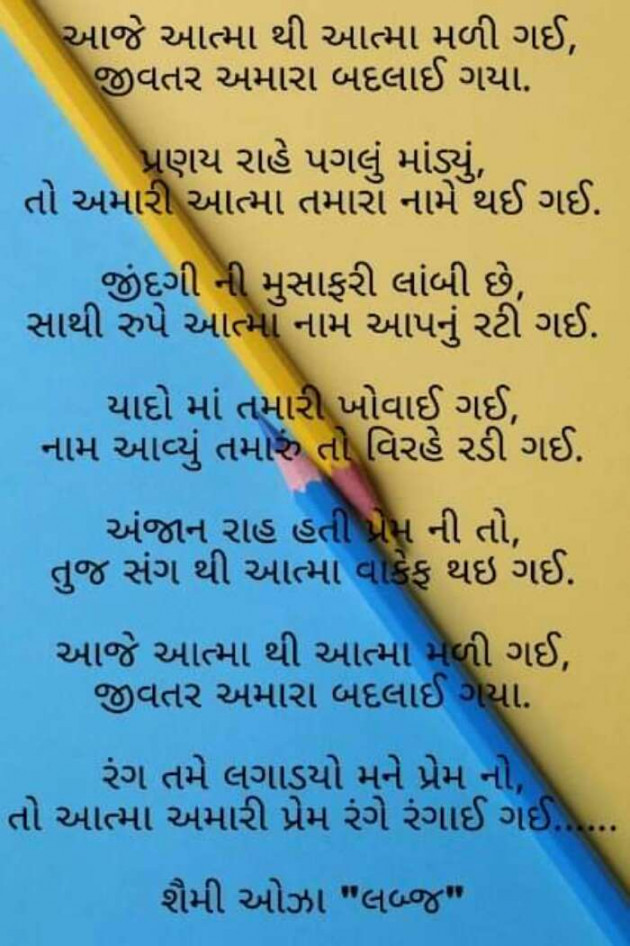 આજે આત્મા થી આત્મા મળી ગઈ,
જીવતર અમારા બદલાઈ ગયા.
પ્રણય રાહે પગલું માંડ્યું,
તો અમારી આત્મા તમારા નામે થઈ ગઈ.
જીંદગી ની મુસાફરી લાંબી છે,
સાથી રુપે આત્મા નામ આપનું રટી ગઈ.
યાદો માં તમારી ખોવાઈ ગઈ,
નામ આવ્યું તમારું તો વિરહે રડી ગઈ.
અંજાન રાહ હતી પ્રેમ ની તો,
તુજ સંગ થી આત્મા વાકેફ થઇ ગઈ.
આજે આત્મા થી આત્મા મળી ગઈ,
જીવતર અમારા બદલાઈ ગયા.
રંગ તમે લગાડયો મને પ્રેમ નો,
તો આત્મા અમારી પ્રેમ રંગે રંગાઈ ગઈ......
શૈમી ઓઝા "લબ્જ"